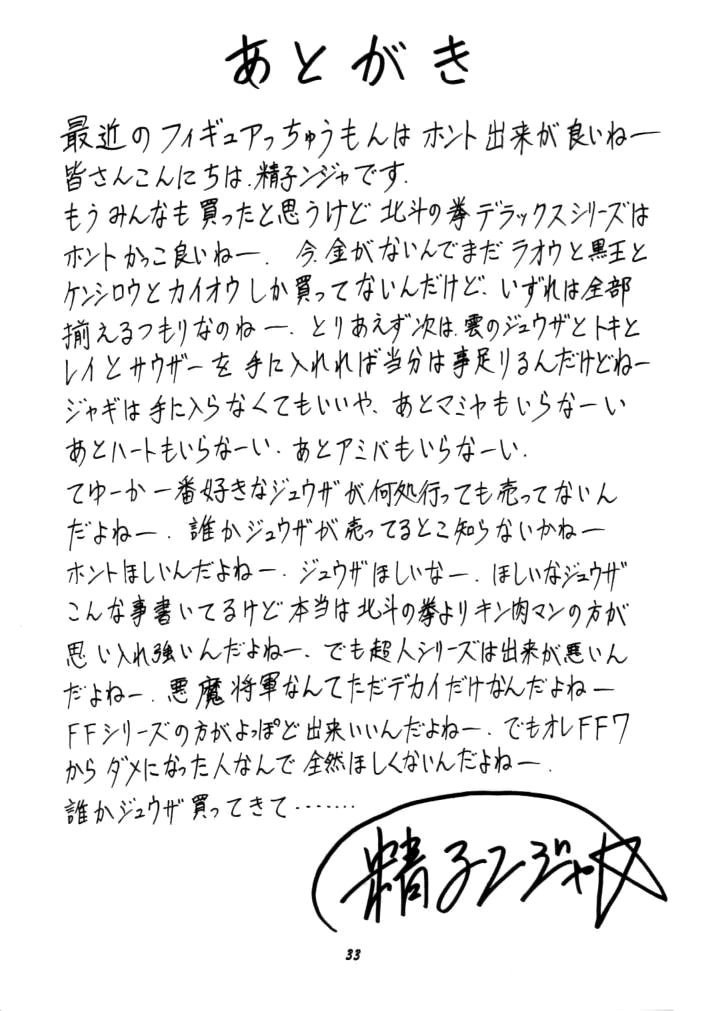 あとがき
最近のフィギュアっちゅうもんは ホント出来が良いねー
皆さんこんにちは、精子ンジャです.
もうみんなも買ったと思うけど 北斗の拳デラックスシリーズは
ホントかっこ良いねー. 今、金がないんでまだ ラオウと黒王と
ケンシロウとカイオウしか買ってないんだけど、いずれは全部
揃えるつもりなのねー. とりあえず次は、雲のジュウザとトキと
レイとサウザーを 手に入れれば当分は事足りるんだけどねー
ジャギは手に入らなくてもいいや、あとマミヤもいらなーい
あとハートもいらなーい. あとアミバもいらなーい.
てゆーか一番好きなジュウザが何処行っても売ってないん
だよねー. 誰かジュウザが売ってるとこ知らないかねー
ホントほしいんだよねー. ジュウザほしいなー. ほしいなジュウザ
こんな事書いてるけど本当は北斗の拳よりキン肉マンの方が
思い入れ強いんだよねー. でも超人シリーズは出来が悪いん
だよねー. 悪魔将軍なんてただデカイだけなんだよねー
FFシリーズの方がよっぽど出来いいんだよねー. でもオレFF7
からダメになった人なんで全然ほしくないんだよねー.
誰かジュウザ買ってきて.......
精子ンジャ
33